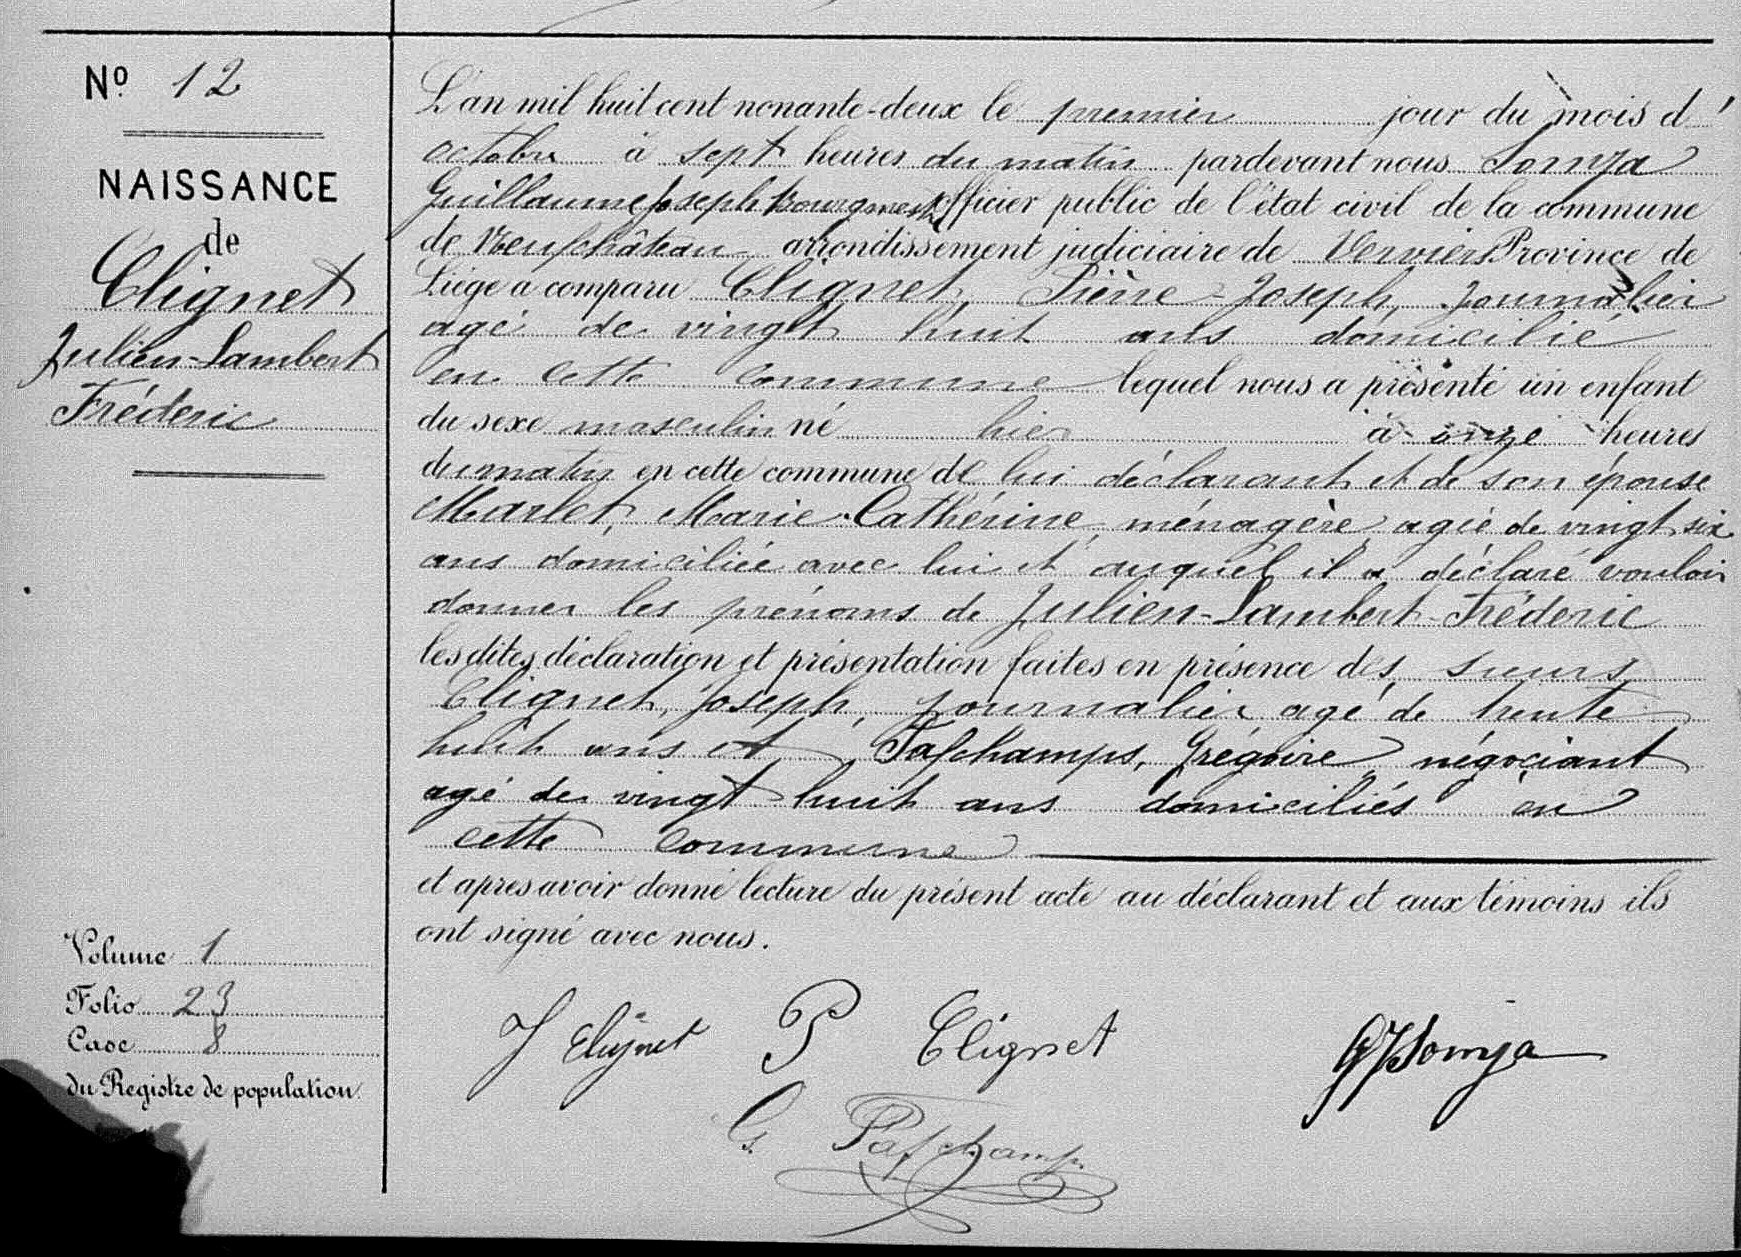 Nº 12
NAISSANCE
de
Clignet
Julien-Lambert
Fréderic
L'an mil huit cent nonante-deux le premier jour du mois d'
octobre à sept heures du matin pardevant nous Somja
Guillaume Joseph bourgmestre officier public de l'état civil de la commune
de Neufchâteau arrondissement judiciaire de Verviers Province de
Liége a comparu Clignet, Pierre-Joseph, journalier
agé de vingt huit ans domicilié
en cette commune lequel nous a présenté un enfant
du sexe masculin né hier à onze heures
du matin en cette commune de lui déclarant et de son épouse
Marlet, Marie-Cathérine, ménagère, agée de vingt six
ans domiciliée avec lui et auquel il a déclaré vouloir
donner les prénoms de Julien-Lambert-Fréderic
les dites déclaration et présentation faites en présence des sieurs
Clignet, Joseph, journalier agé de trente
huit ans et Pafchamps, Grégoire négociant
agé de vingt huit ans domiciliés en
cette commune
et après avoir donné lecture du présent acte au déclarant et aux témoins ils
ont signé avec nous.
Volume 1
Folio 23
Case 8
du Registre de population.
J Clignet P Clignet GJSomja
G. Pafchamps